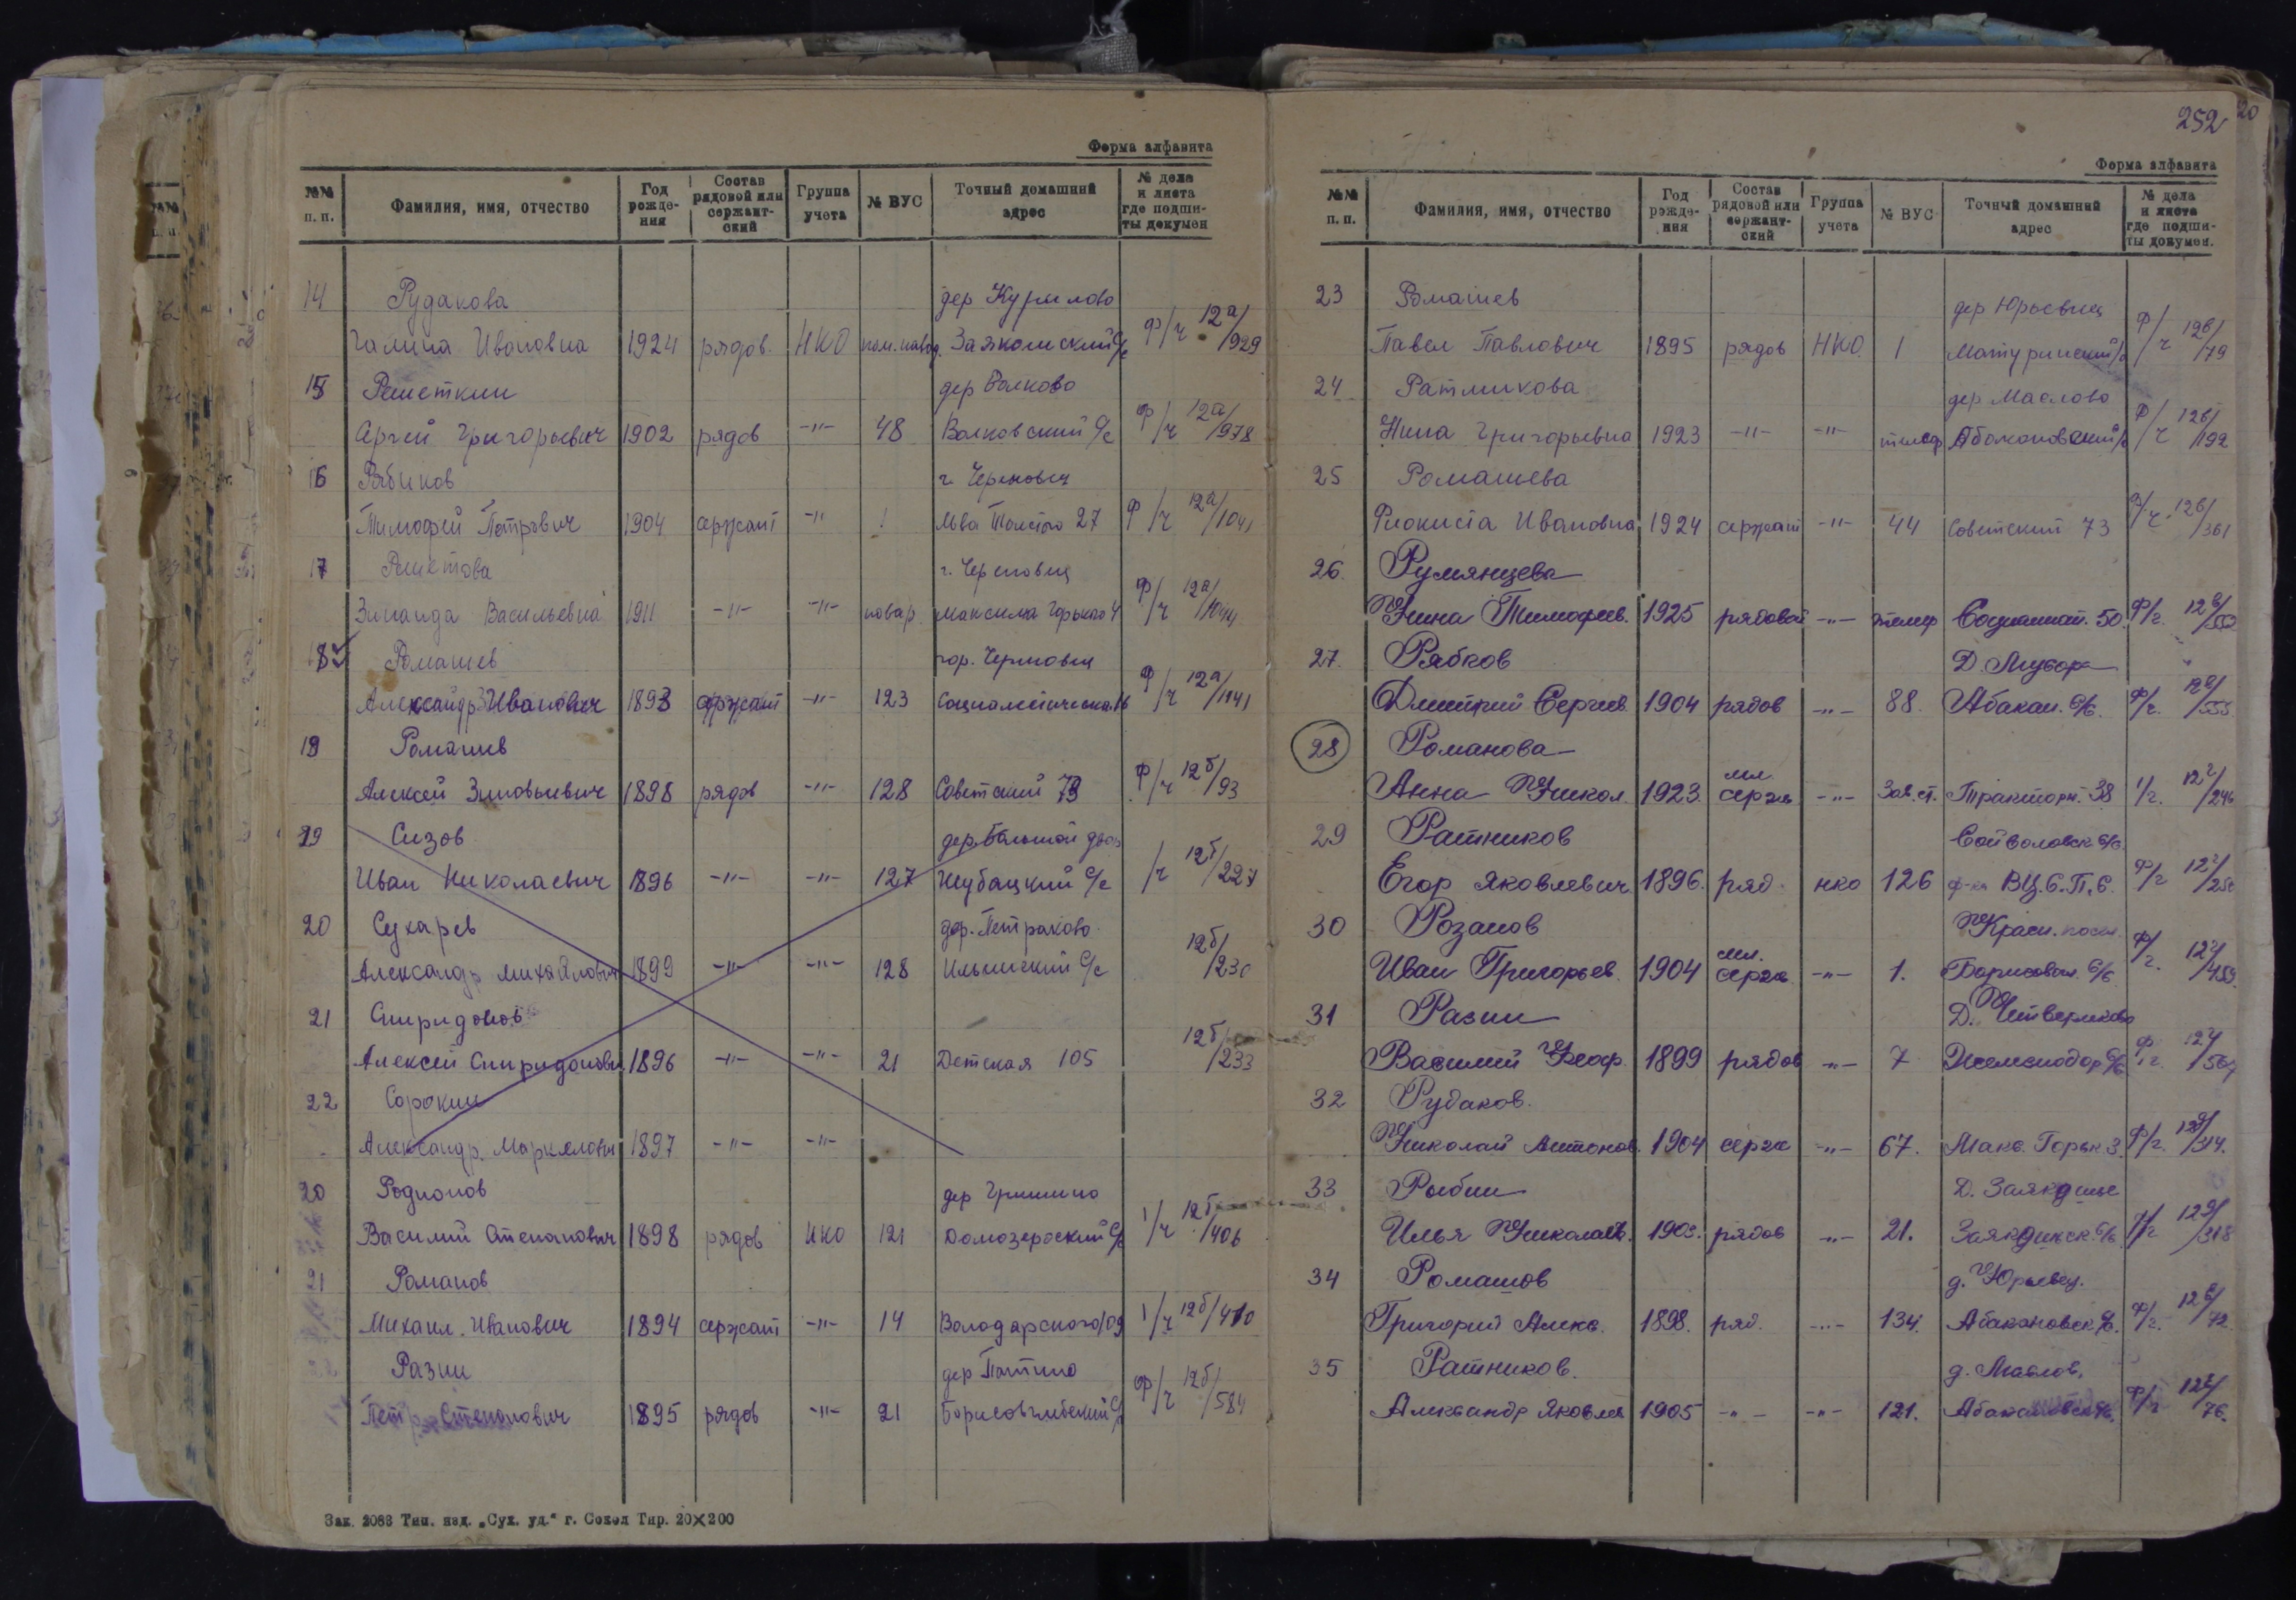 Форма алфавита
№№ п. п. Фамилия, имя, отчество Год рожде- ния Состав рядовой или сержант- ский Группа учета № ВУС Точный домашний адрес № дела и листа где подши- ты докумен
14 Рудакова дер Курилово
Галина Ивановна 1924 рядов. НКО пом. навод. Заякошский с/с ф/ч 12а/929
15 Решеткин дер Волково
Сергей Григорьевич 1902 рядов -"- 48 Волковский с/с ф/ч 12а/978
16 Рябиков г. Череповец
Тимофей Петрович 1904 сержант -"- 1 Льва Толстого 27 ф/ч 12а/1041
17 г. Череповец
Зинаида Васильевна 1911 -"- -"- повар Максима Горького 4 ф/ч 12а
18 Ромашев гор. Череповец
Александр Иванович 1893 сержант -"- 123 Социалистическая 16 ф/ч 12а/1141
19 Ромашев
Алексей Зиновьевич 1898 рядов -"- 128 Советский 73 ф/ч 12б/93
19 Сизов дер. Большой двор
Иван Николаевич 1896 -"- -"- 127 Шубацкий с/с /ч 12б/227
20 Сухарев дер. Петраково
Александр Михайлович 1899 -"- -"- 128 с/с 12б/230
21 Спиридонов
Алексей Спиридонович 1896 -"- -"- 21 Детская 105 12б/233
22 Сорокин
Александр. Маркелович 1897 -"- -"-
20 Родионов дер Гришино
Василий Степанович 1898 рядов НКО 121 Домозерский с/с 1/ч 12б/406
21 Романов
Михаил. Иванович 1894 сержант -"- 14 Володарского 109 1/ч 12б/410
22 Разин дер
Петр Степанович 1895 рядов -"- 21 Борисоглебский с/с ф/ч 12б/584
Зак. 2088 Тип. изд. „Сух. уд.“ г. Сокол Тир. 20X200
252
20
Форма алфавита
№№ п. п. Фамилия, имя, отчество Год рожде- ния Состав рядовой или сержант- ский Группа учета № ВУС Точный домашний адрес № дела и листа где подши- ты докумен.
23 Ромашев дер Юрьевец
Павел Павлович 1895 рядов НКО 1 Матуринский с/с ф/ч 12в/79
24 Ратникова дер Маслово
Нина Григорьевна 1923 -"- -"- телеф Абакановский с/с ф/ч 12в/192
25 Ромашева
Ивановна 1924 сержант -"- 44 Советский 73 ф/ч 12в/361
26. Румянцева
Нина Тимофеев. 1925 рядовой -"- телеф Социалист. 50. ф/ч. 12в
27. Рябков Д.
Дмитрий Сергеев. 1904 рядов -"- 88. Абакан. с/с. ф/ч. 12в/555
28 Романова
Анна Никол. 1923. мл. серж -"- Зав. ст. Трактории. 38 1/ч. 12г/246
29 Ратников
Егор Яковлевич 1896. ряд. нко 126 ф-ка В.Ц.С.П.С. ф/ч 12г
30 Розанов Красн. посел.
Иван Григорьев. 1904 мл. серж -"- 1. Борисовск. с/с ф/ч. 12г/459.
31 Разин Д. Четвериково
Василий Феоф. 1899 рядов -"- 7 Железнодор. с/с ф/ч. 12г
32 Рудаков.
Николай Антонов. 1904 серж -"- 67. Макс. Горьк. 3. ф/ч. 12д/314.
33 Рыбин
Илья Николаев. рядов -"- 21. с/с 12д/318
34 Ромашов д. Юрьевец.
Григорий Алекс. 1898. ряд. -"- 134. Абакановск. с/с. ф/ч. 12е/72.
35 Ратников. д. Маслов.
Александр Яковлев 1905 -"- -"- 121. Абакановск. с/с. ф/ч 12е/76.